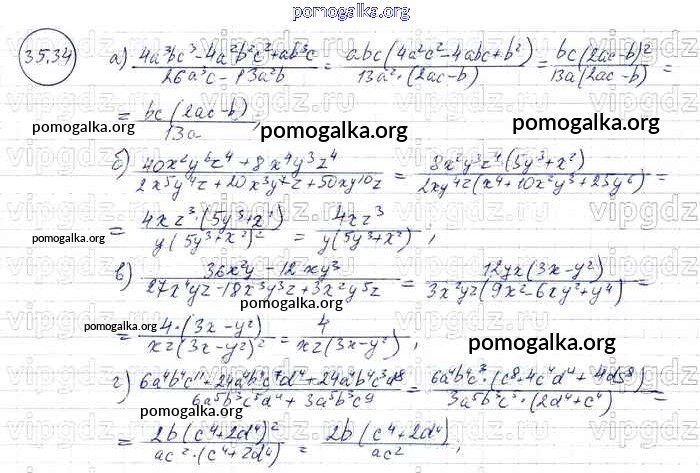 pomogalka.org
35.34 а) (4a³bc³ - 4a²b²c² + ab³c)/(26a³c - 13a²b) = abc(4a²c² - 4abc + b²)/(13a²·(2ac - b)) = bc(2ac - b)²/(13a(2ac - b)) =
= bc(2ac - b)/(13a),
pomogalka.org pomogalka.org pomogalka.org
б) (40x²y⁶z⁴ + 8x⁴y³z⁴)/(2x⁵y⁴z + 20x³y⁷z + 50xy¹⁰z) = 8x²y³z⁴(5y³ + x²)/(2xy⁴z(x⁴ + 10x²y³ + 25y⁶)) =
= 4xz³·(5y³ + x²)/(y(5y³ + x²)²) = 4xz³/(y(5y³ + x²));
pomogalka.org pomogalka.org
в) (36x²y - 12xy³)/(27x⁴yz - 18x³y³z + 3x²y⁵z) = 12yx(3x - y²)/(3x²yz(9x² - 6xy² + y⁴)) =
pomogalka.org
= 4·(3x - y²)/(xz(3x - y²)²) = 4/(xz(3x - y²)),
pomogalka.org pomogalka.org
г) (6a⁴b⁴c¹¹ + 24a⁴b⁴c⁷d⁴ + 24a⁴b⁴c³d⁸)/(6a⁵b³c⁵d⁴ + 3a⁵b³c⁹) = 6a⁴b⁴c³·(c⁸ + 4c⁴d⁴ + 4d⁸)/(3a⁵b³c⁵·(2d⁴ + c⁴)) =
pomogalka.org pomogalka.org
= 2b(c⁴ + 2d⁴)²/(ac²·(c⁴ + 2d⁴)) = 2b(c⁴ + 2d⁴)/(ac²);